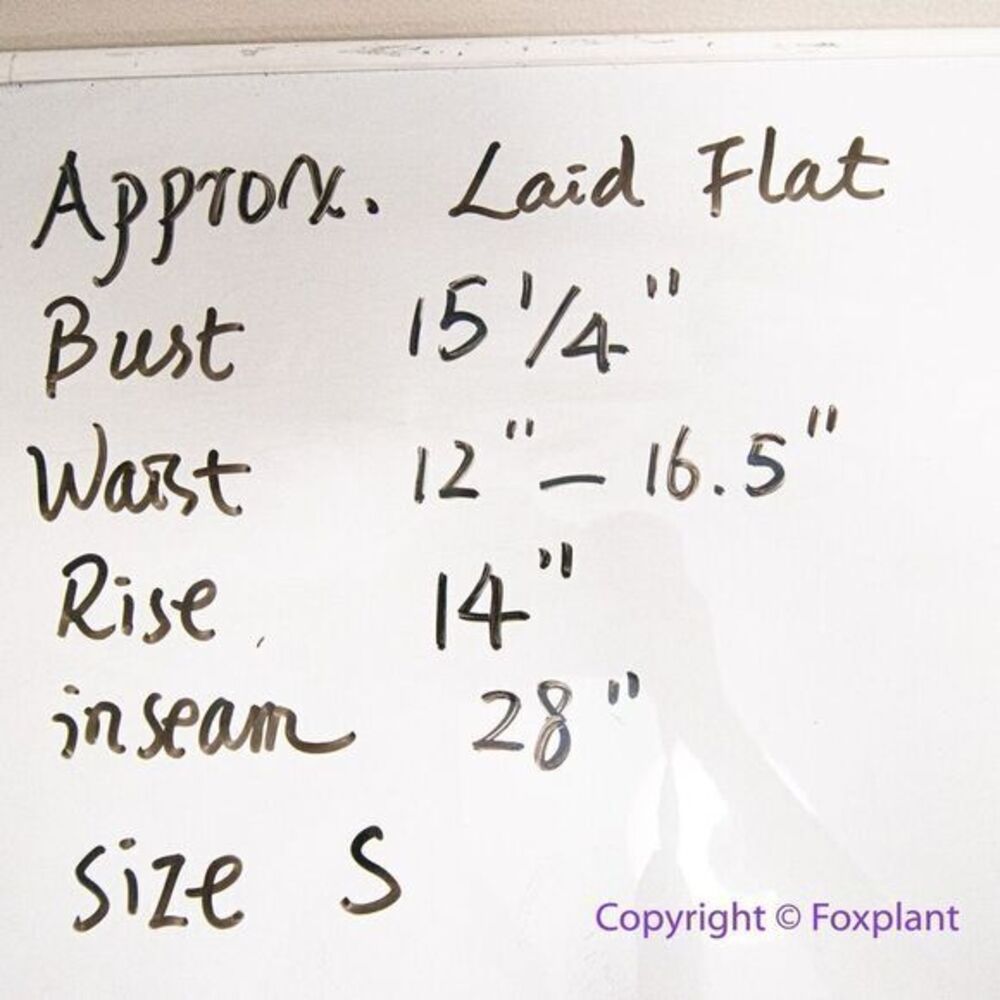 Approx. Laid Flat
Bust 15 1/4"
Waist 12" - 16.5"
Rise 14"
inseam 28"
size S
Copyright © Foxplant